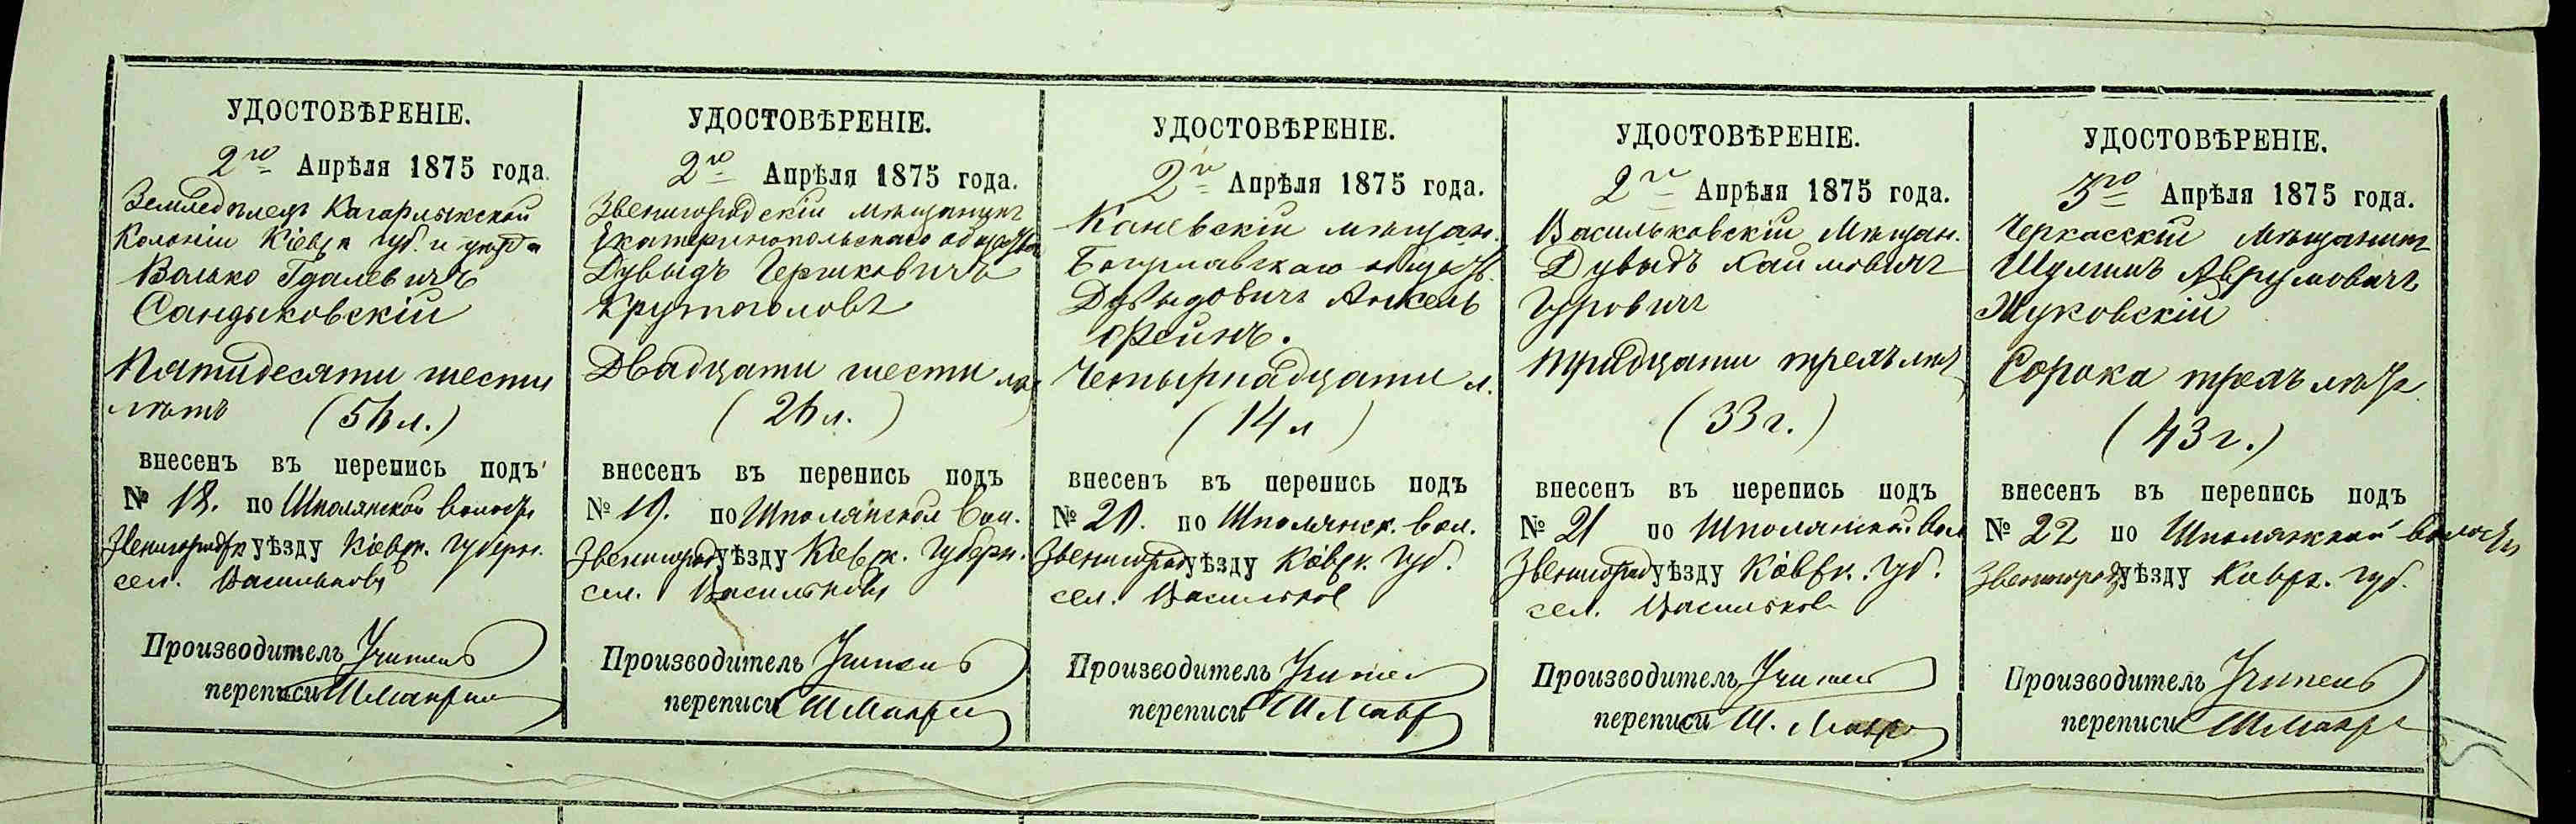 УДОСТОВѢРЕНІЕ.
2го Апрѣля 1875 года.
Земледѣлецъ Кагарлыкской
Колоніи Кіевск губ. и уѣзда
Волько Гдалевичъ
Сандыковскій
Пятидесяти шести
лѣтъ (56 л.)
внесенъ въ перепись подъ
№ 18. по Шполянской волости
Звенигородск уѣзду Кіевск. Губерн.
сел. Васильковѣ
Производитель Учитель
переписи

УДОСТОВѢРЕНІЕ.
2го Апрѣля 1875 года.
Звенигородскій мѣщанинъ
Екатеринопольскаго общества
Дувыдъ Гершковичъ
Крутоголовъ
Двадцати шести лѣ
(26 л.)
внесенъ въ перепись подъ
№ 19. по Шполянской вол.
Звенигород уѣзду Кіевск. Губерн.
сел. Васильковѣ
Производитель Учитель
переписи

УДОСТОВѢРЕНІЕ.
2го Апрѣля 1875 года.
Каневскій мѣщан.
Богуславскаго общест.
Дувыдовичъ Анкель
Фейнъ.
Четырнадцати л.
(14 л)
внесенъ въ перепись подъ
№ 20. по Шполянск. вол.
Звенигород уѣзду Кіевск. Губ.
сел. Васильков
Производитель Учител
переписи

УДОСТОВѢРЕНІЕ.
2го Апрѣля 1875 года.
Васильковскій Мѣщан.
Дувыдъ Хаимовичъ
Гурович
тридцати трехъ лѣт
(33 г.)
внесенъ въ перепись подъ
№ 21 по Шполянской. Вол
Звенигород уѣзду Кіевск. Губ.
сел. Васильков
Производитель Учитель
переписи

УДОСТОВѢРЕНІЕ.
3го Апрѣля 1875 года.
Черкасскій Мѣщанинъ
Шулимъ Аврумовичъ
Жуковскій
Сорока трехъ лѣтъ
(43 г.)
внесенъ въ перепись подъ
№ 22 по Шполянской волости
Звенигород уѣзду Киевск. Губ.
Производитель Учитель
переписи